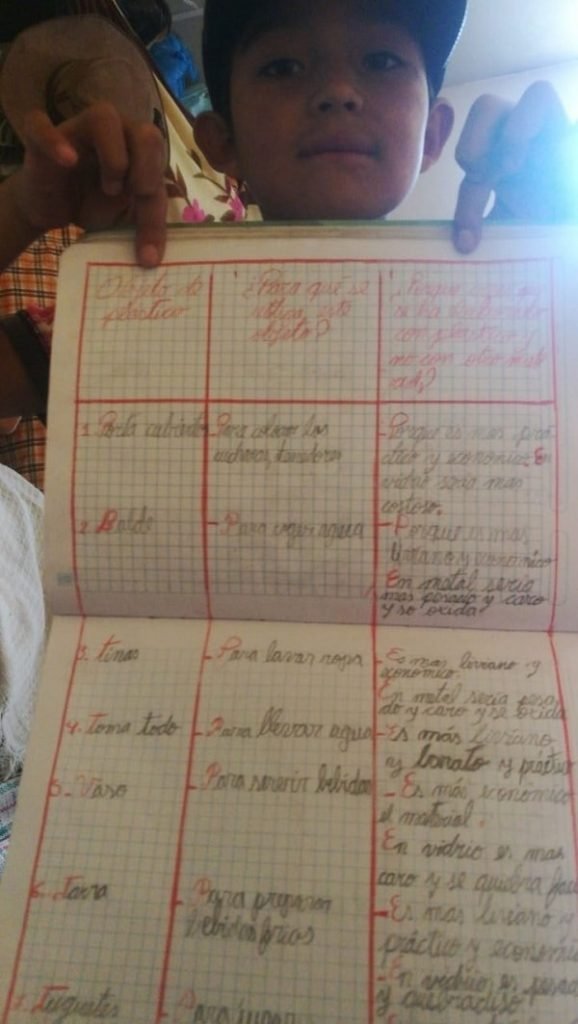 Objeto de
plástico
¿Para qué se
utiliza este
objeto?
¿Porque
se ha elaborado
con plástico y
no con otro mate
rial?
1. Porta cubiertos
Para colocar los
Porque es mas prá
ctico y economico. En
vidrio seria mas
costoso.
2. Balde
- Para agua
- Porque es mas
liviano y economico
En metal seria
mas pesado y caro
y so oxida
3. tinas
- Para lavar ropa
- Es mas liviano y
economico.
En metal seria pesa
do y caro y se oxida
4. Toma todo
- Para llevar agua
- Es más liviano
y barato y práctico
5. Vaso
- Para servir bebidas
- Es más economico
el material.
En vidrio es mas
caro y se quiebra
6. Jarra
- Para preparar
bebidas frias
- Es mas liviano y
práctico y economi
- En vidrio es pesa
7. Juguetes
Para jugar